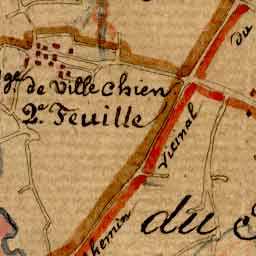 ge. de Ville Chien.
2e. Feuille
du
Vicinal
chemin
du